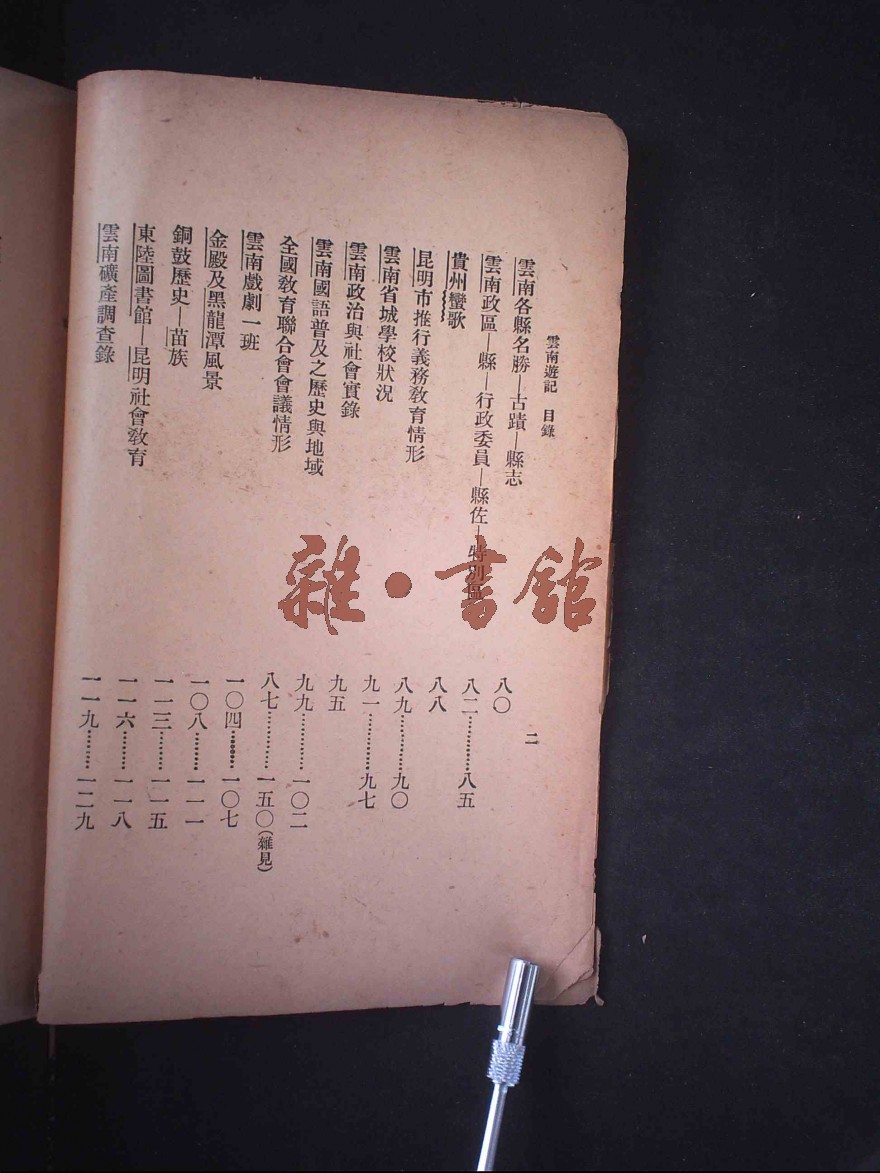 雲南遊記 目錄 二
雲南各縣名勝—古蹟—縣志 八〇
雲南政區—縣—行政委員—縣佐—特別區 八二…………八五
貴州蠻歌 八八
昆明市推行義務教育情形 八九…………九〇
雲南省城學校狀況 九一…………九七
雲南政治與社會實錄 九五
雲南國語普及之歷史與地域 九九…………一〇二
全國教育聯合會會議情形 八七…………一五〇(雜見)
雲南戲劇一班 一〇四………一〇七
金殿及黑龍潭風景 一〇八………一一一
銅鼓歷史—苗族 一一三………一一五
東陸圖書館—昆明社會教育 一一六………一一八
雲南礦產調查錄 一一九………一二九
雜·書館